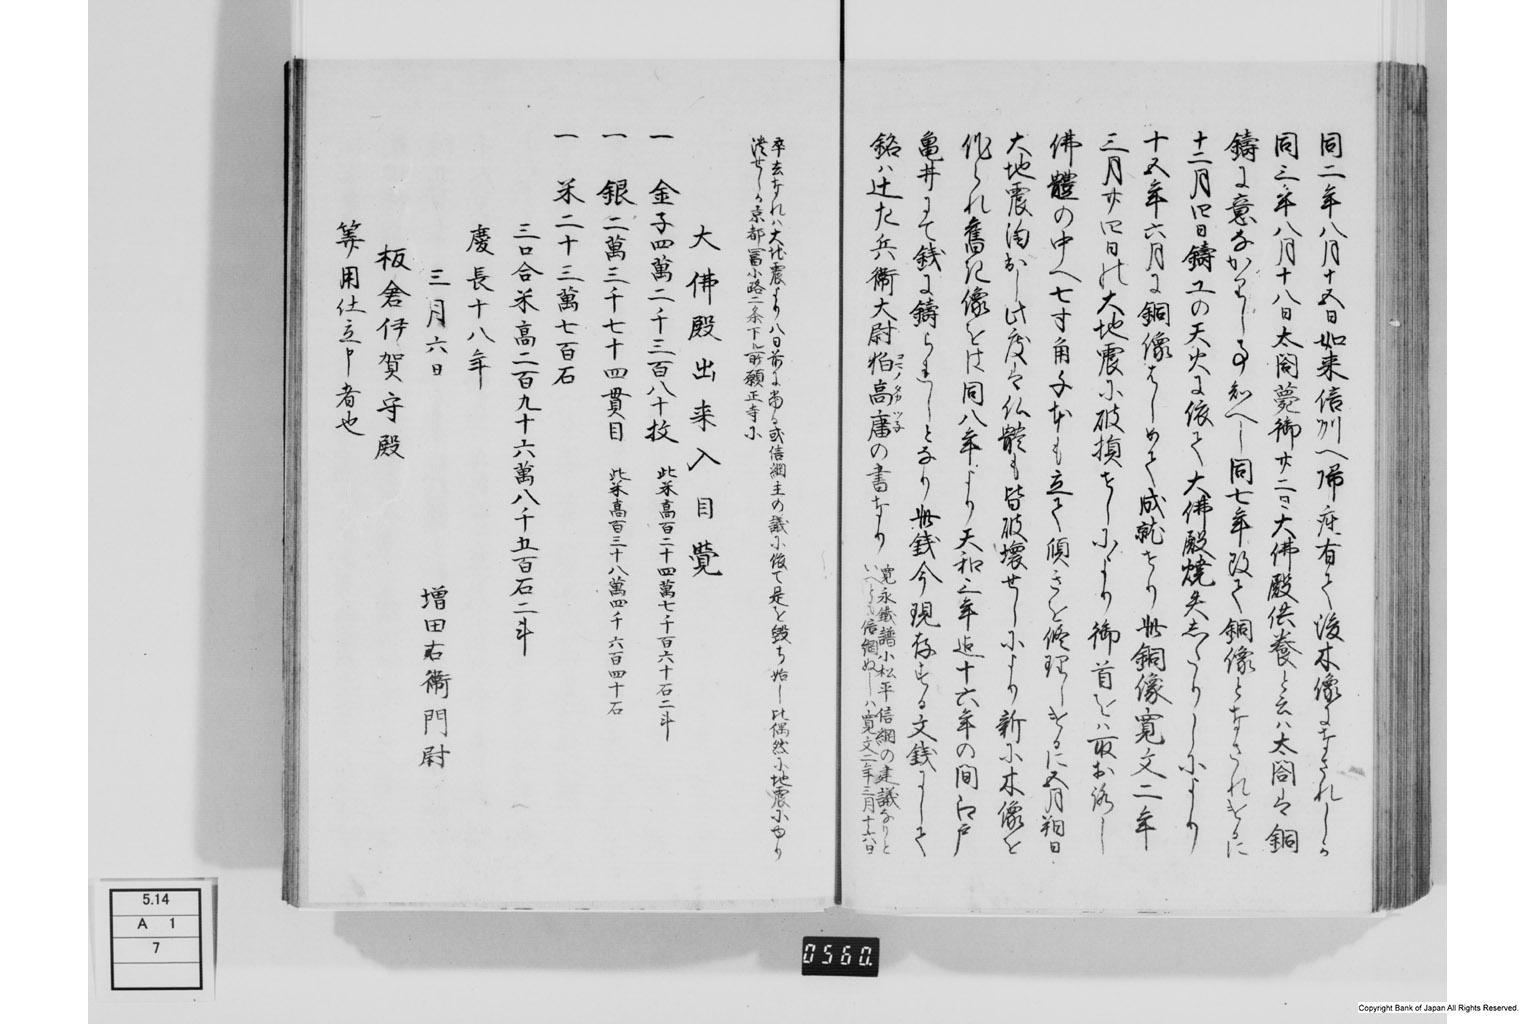 同二年八月十五日如来信州へ帰座有て後木像になされしか
同三年八月十八日太閤薨御廿二日大佛殿供養と云ハ太閤は銅
鋳に意なかりし事知へし同七年改て銅像となされけるに
十二月四日鋳工の天火に依て大佛殿焼失したりしにより
十五年六月に銅像はしめて成就せり此銅像寛文二年
三月廿四日の大地震に破損せしにより御首をハ取お路し
佛體の中へ七寸角千本も立て傾きを修理しけるに五月朔日
大地震洵おし此度は仏體も皆破壊せしにより新に木像を
作られ舊記像をは同八年より天和三年迄十六年の間江戸
亀井にて銭に鋳られしとなり此銭今現存する文銭にして
銘ハ辻た兵衛大尉狛高庸の書なり
寛永銭譜小松平信綱の建議なりと
いへとも信綱ぬしハ寛文二年三月十六日
卒去なれハ大地震より八日前に当る或信綱主の議に依て是を毀ち始し比偶然に地震にゆり
潰せしか京都冨小路二条下ル所願正寺に
大佛殿出来入目覺
一 金子四萬二千三百八十枚 此米高百二十四萬七千百六十石二斗
一 銀二萬三千七十四貫目 此米高百三十八萬四千六百四十石
一 米二十三萬七百石
三口合米高二百九十六萬八千五百石二斗
慶長十八年
三月六日 増田右衛門尉
板倉伊賀守殿
筭用仕立申者也
5.14
A 1
7
0560.
Copyright Bank of Japan All Rights Reserved.